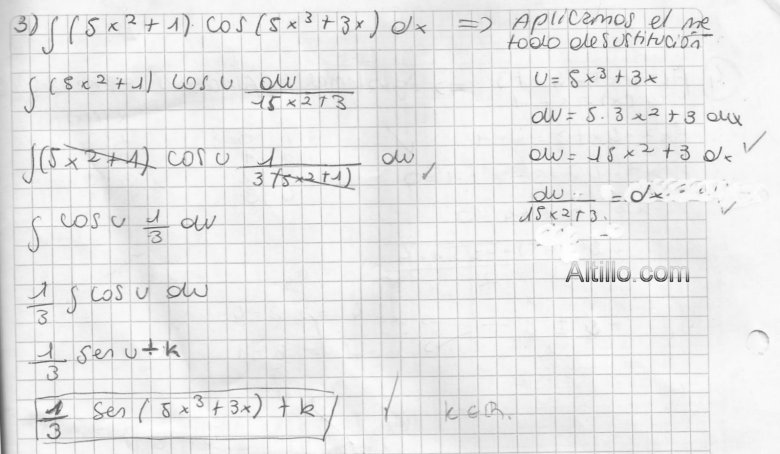 3) ∫ (5x²+1) cos(5x³+3x) dx ⇒ Aplicamos el me
todo de sustitución
u = 5x³+3x
du = 5.3x²+3 dx
du = 15x²+3 dx
du / 15x²+3 = dx
∫ (5x²+1) cos u du / 15x²+3
∫ (5x²+1) cos u 1 / 3(5x²+1) du
∫ cos u 1/3 du
1/3 ∫ cos u du
1/3 sen u + k
1/3 sen (5x³+3x) + k
k∈R.
Altillo.com